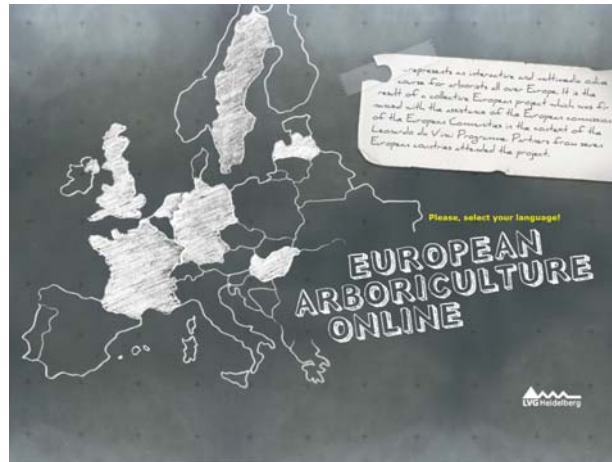 represents an interactive and multimedia online
course for arborists all over Europe. It is the
result of a collective European project which was fi
nanced with the assistance of the European commission
of the European Communities in the context of the
Leonardo da Vinci Programme. Partners from seven
European countries attended the project.
Please, select your language!
EUROPEAN
ARBORICULTURE
ONLINE
LVG Heidelberg